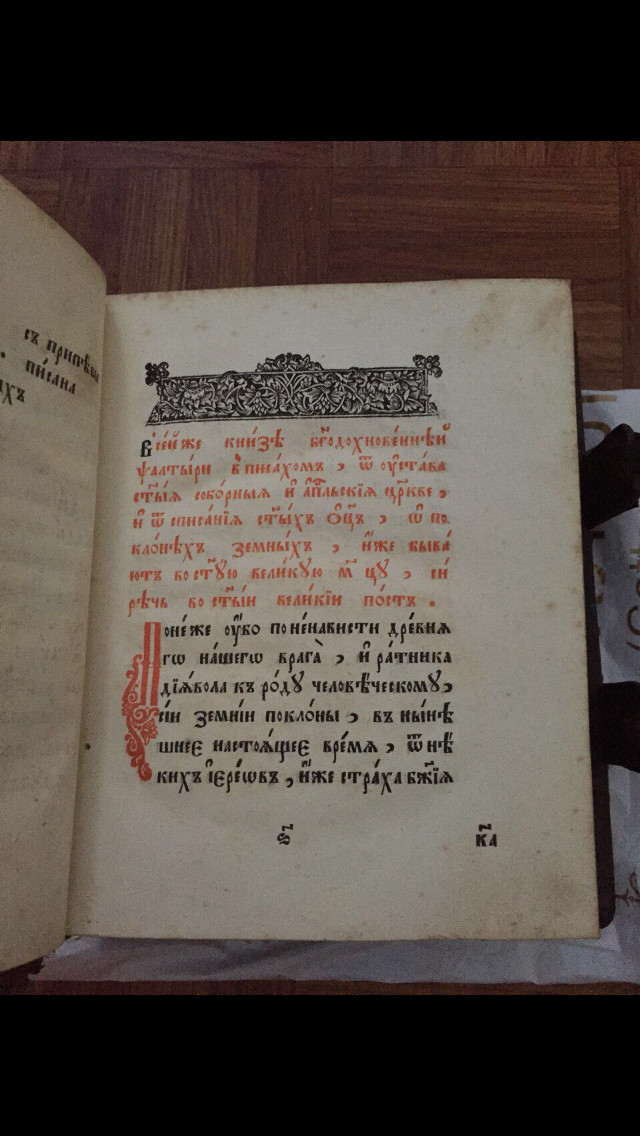 съ припѣвы
писана
ыхъ
В сей же книзѣ бг҃одохнове́ннѣй
ѱалты́ри вписа́хомъ , ѿ ᲂуста́ва
ст҃ы́ѧ собо́рныѧ и҆ а҆пⷭ҇льскїѧ цр҃кве ,
и҆ ѿ списа́нїѧ ст҃ы́хъ ѻ҆ц҃ъ , ѡ҆ по
кло́нѣхъ земны́хъ , и҆́же быва́
ютъ во ст҃у́ю вели́кую м҃цу , си́
рѣчь во ст҃ы́и вели́кїи по́стъ .
Поне́же ᲂу҆́бо по не́нависти дре́внѧ
гѡ на́шегѡ врага̀ , и҆ ра́тника
дїѧ́вола къ ро́ду человѣ́ческому ,
сїи́ земні́и покло́ны , въ ны́нѣ
шнеє настоѧ́щеє вре́мѧ , ѿ нѣ́
кихъ і҆єре́ѡвъ , и҆́же стра́ха бж҃їѧ
ѕ҃ к҃а